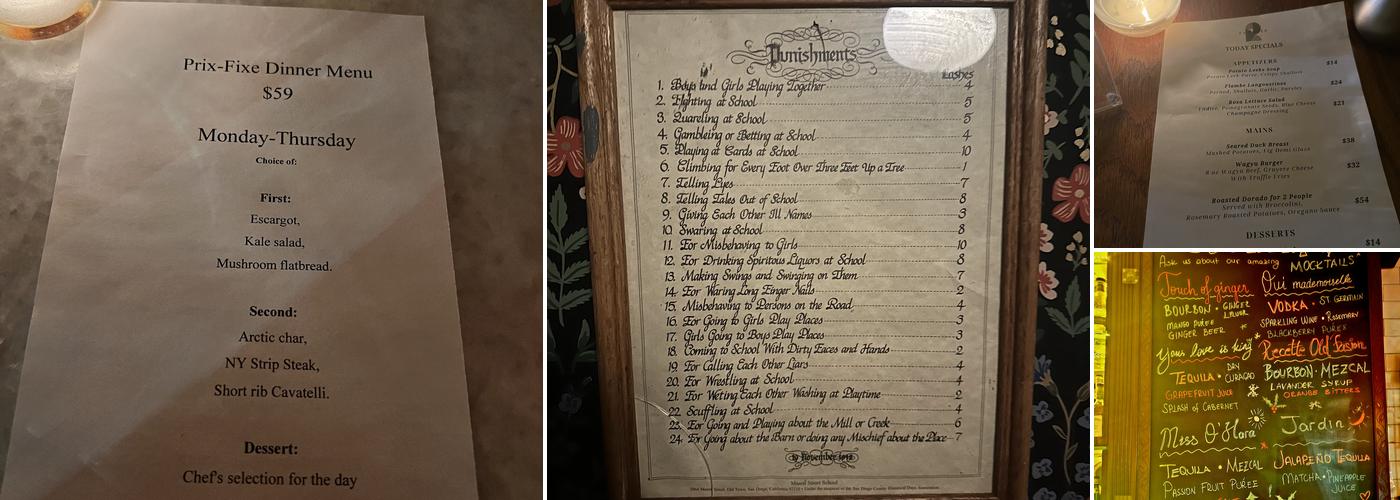 Prix-Fixe Dinner Menu
$59
Monday-Thursday
Choice of:
First:
Escargot,
Kale salad,
Mushroom flatbread.
Second:
Arctic char,
NY Strip Steak,
Short rib Cavatelli.
Dessert:
Chef's selection for the day
Punishments
Lashes
1. Boys and Girls Playing Together 4
2. Fighting at School 5
3. Quareling at School 5
4. Gambleing or Betting at School 4
5. Playing at Cards at School 10
6. Climbing for Every Foot Over Three Feet Up a Tree 1
7. Telling Lyes 7
8. Telling Tales Out of School 8
9. Giving Each Other Ill Names 3
10. Swaring at School 8
11. For Misbehaving to Girls 10
12. For Drinking Spiritous Liquors at School 8
13. Making Swings and Swinging on Them 7
14. For Waring Long Finger Nails 2
15. Misbehaving to Persons on the Road 4
16. For Going to Girls Play Places 3
17. Girls Going to Boys Play Places 3
18. Coming to School With Dirty Faces and Hands 2
19. For Calling Each Other Liars 4
20. For Wrestling at School 4
21. For Weting Each Other Washing at Playtime 2
22. Scuffling at School 4
23. For Going and Playing about the Mill or Creek 6
24. For Going about the Barn or doing any Mischief about the Place 7
Mason Street School
TODAY SPECIALS
APPETIZERS
Potato Leeks Soup $14
Potato Leek Puree, Crispy Shallots
Flambe Langoustines $24
Pernod, Shallots, Garlic, Parsley
Rosa Lettuce Salad $21
Endive, Pomegranate Seeds, Blue Cheese
Champagne Dressing
MAINS
Seared Duck Breast $38
Mashed Potatoes, Fig Demi Glass
Wagyu Burger $32
8 oz Wagyu Beef, Gruyere Cheese
With Truffle Fries
Roasted Dorado for 2 People $54
Served with Broccolini,
Rosemary Roasted Potatoes, Oregano Sauce
DESSERTS
$14
Ask us about our amazing MOCKTAILS
Touch of ginger
BOURBON • GINGER LIQUOR
MANGO PURÉE
GINGER BEER
Oui mademoiselle
VODKA • ST. GERMAIN
SPARKLING WINE • ROSEMARY
BLACKBERRY PURÉE
Your love is king
TEQUILA • DRY CURACAO
GRAPEFRUIT JUICE
SPLASH of CABERNET
Recette Old Fasion
BOURBON • MEZCAL
LAVANDER SYRUP
ORANGE BITTERS
Miss O'Hara
TEQUILA • MEZCAL
PASSION FRUIT PUREE
Jardin
JALAPEÑO TEQUILA
MATCHA • PINEAPPLE
JUICE